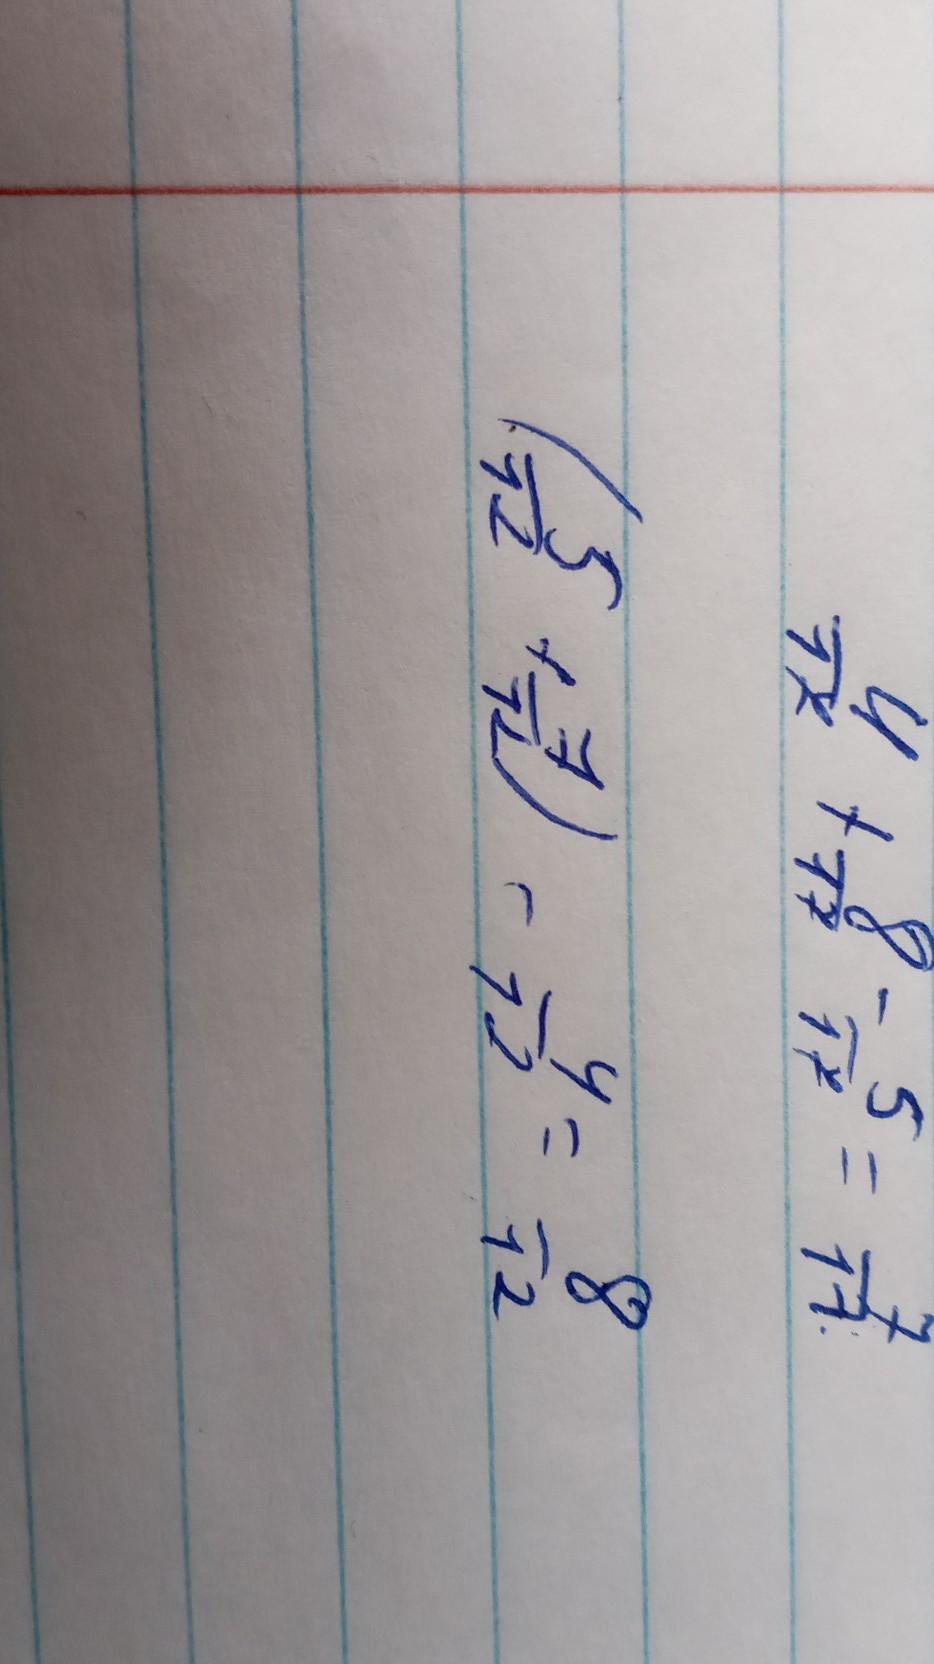 4/17 + 8/17 - 5/17 = 7/17.
(5/12 + 7/12) - 4/12 = 8/12